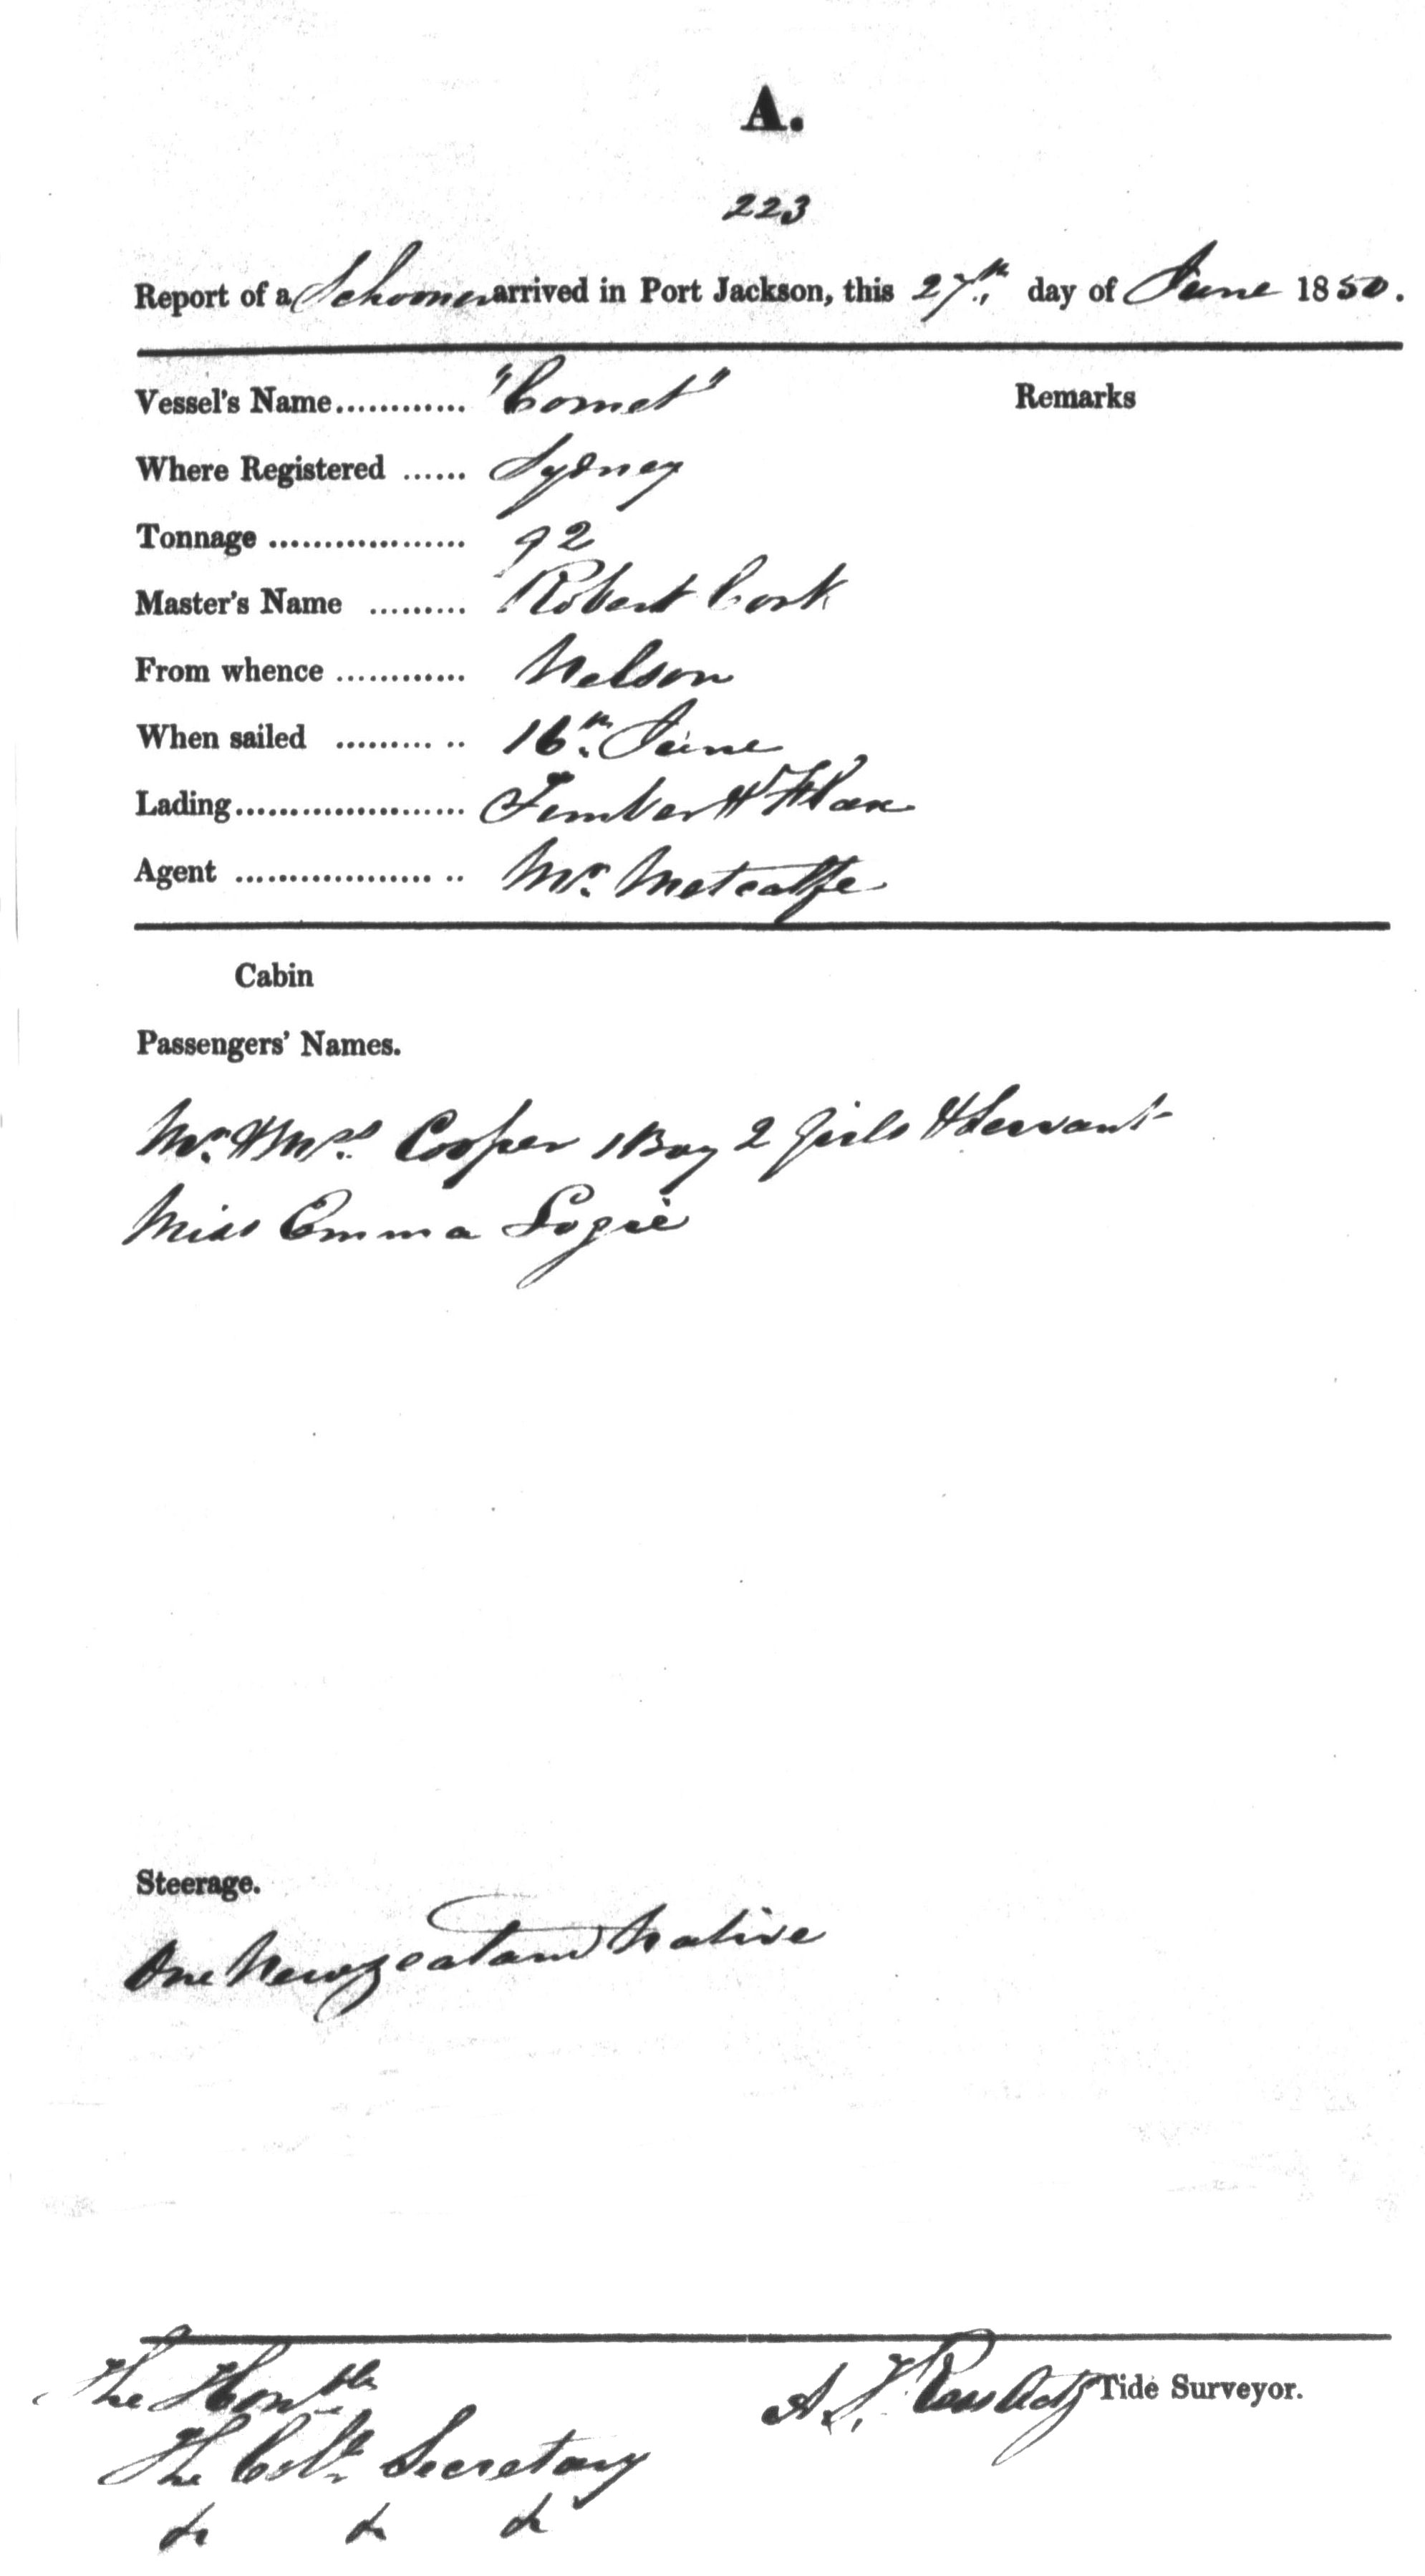 A.
223
Report of a Schooner arrived in Port Jackson, this 27th day of June 1850.
Vessel's Name............ "Comet" Remarks
Where Registered ...... Sydney
Tonnage .................. 92
Master's Name ......... Robert Cork
From whence ............ Nelson
When sailed ......... .. 16th June
Lading..................... Timber & Flax
Agent .................. .. Mr. Metcalfe
Cabin
Passengers' Names.
Mr. & Mrs. Cooper 1 Boy 2 girls & Servant
Miss Emma Logie
Steerage.
One Newzealand Native
The Honble
The Coll. Secretary
&c &c &c
A. Actg Tide Surveyor.